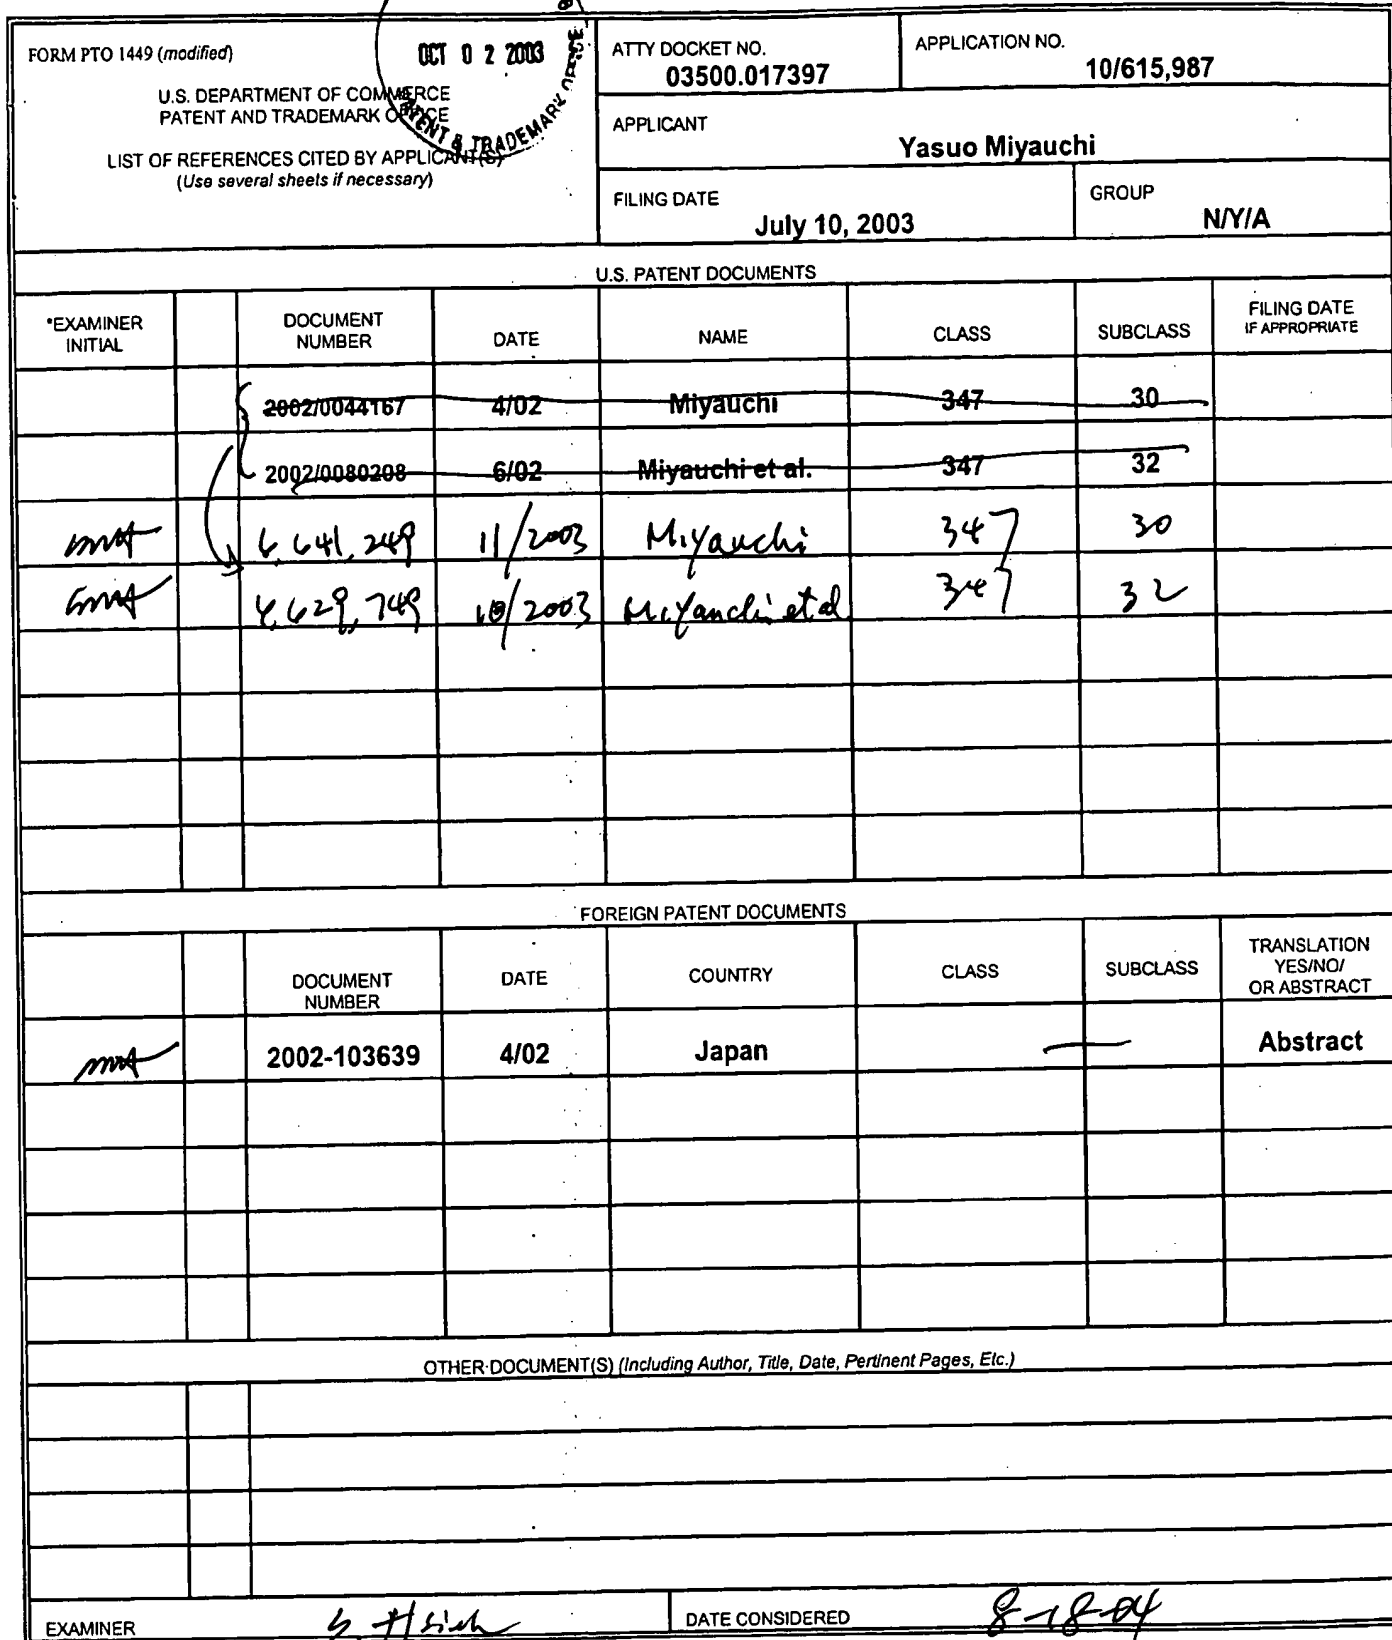 FORM PTO 1449 (modified)
U.S. DEPARTMENT OF COMMERCE
PATENT AND TRADEMARK OFFICE
LIST OF REFERENCES CITED BY APPLICANT(S)
(Use several sheets if necessary)
OCT 0 2 2003
PATENT & TRADEMARK OFFICE
ATTY DOCKET NO.
03500.017397
APPLICATION NO.
10/615,987
APPLICANT
Yasuo Miyauchi
FILING DATE
July 10, 2003
GROUP
N/Y/A
U.S. PATENT DOCUMENTS
*EXAMINER INITIAL DOCUMENT NUMBER DATE NAME CLASS SUBCLASS FILING DATE IF APPROPRIATE
2002/0044167 4/02 Miyauchi 347 30
2002/0080208 6/02 Miyauchi et al. 347 32
6,641,249 11/2003 Miyauchi 347 30
6,629,749 10/2003 Miyauchi et al 347 32
FOREIGN PATENT DOCUMENTS
DOCUMENT NUMBER DATE COUNTRY CLASS SUBCLASS TRANSLATION YES/NO/ OR ABSTRACT
2002-103639 4/02 Japan Abstract
OTHER DOCUMENT(S) (Including Author, Title, Date, Pertinent Pages, Etc.)
EXAMINER S. Hsieh DATE CONSIDERED 8-18-04